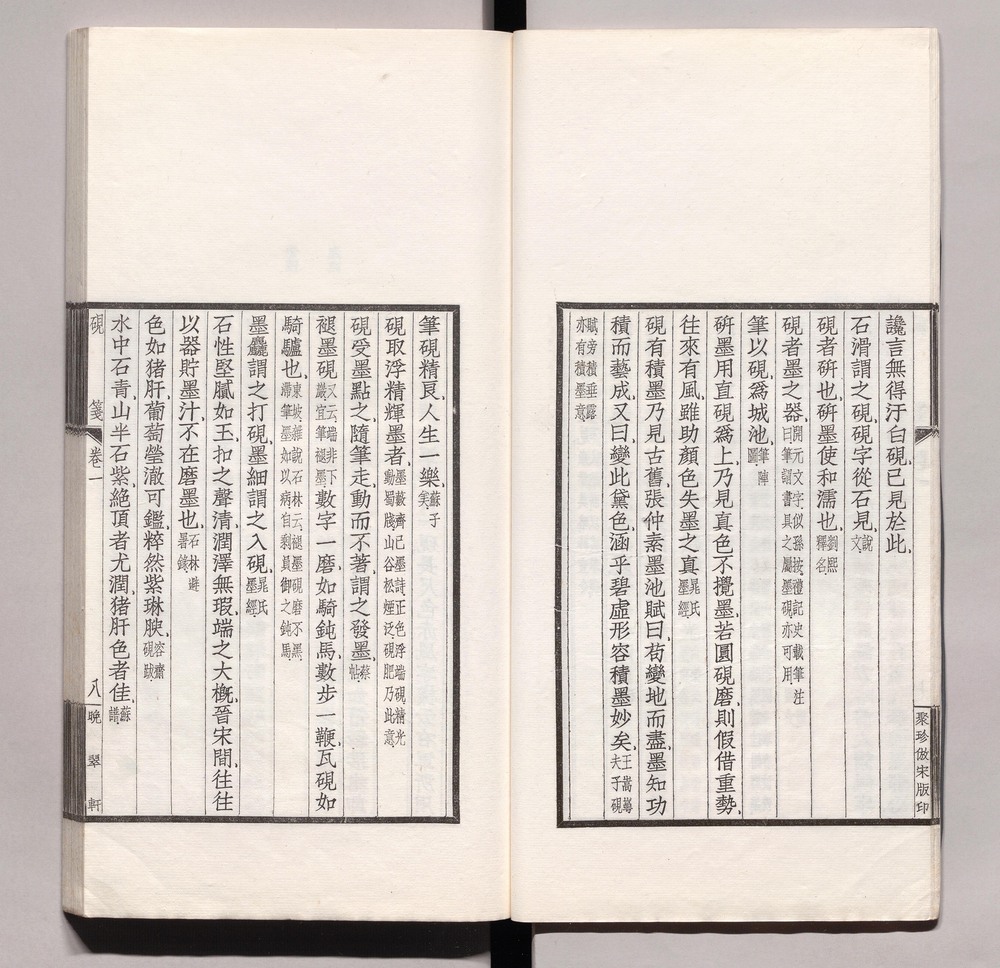 讒言無得汙白硯已見於此
石滑謂之硯硯字從石見說文
硯者硏也硏墨使和濡也劉熙釋名
硯者墨之器開元文字似孫按禮記史載筆注曰筆謂書具之屬墨硯亦可用
筆以硯爲城池筆陣圖
硏墨用直硯爲上乃見真色不攪墨若圓硯磨則假借重勢
往來有風雖助顏色失墨之真晁氏墨經
硯有積墨乃見古舊張仲素墨池賦曰苟變地而盡墨知功
積而藝成又曰變此黛色涵乎碧虛形容積墨妙矣王嵩崿夫子硯
賦旁積垂露亦有積墨意
聚珍倣宋版印
筆硯精良人生一樂蘇子美
硯取浮精輝墨者墨藪齊己墨詩正色浮端硯精光動蜀牋山谷松煙泛硯肥乃此意
硯受墨點之隨筆走動而不著謂之發墨蔡帖
褪墨硯又云端非下巖宜筆褪墨數字一磨如騎鈍馬數步一鞭瓦硯如
騎驢也東坡雜說石林云褪墨硯磨不黑滯筆墨如以病自剩員御之鈍馬
墨麤謂之打硯墨細謂之入硯晁氏墨經
石性堅膩如玉扣之聲清潤澤無瑕端之大槪晉宋間往往
以器貯墨汁不在磨墨也石林避暑錄
色如猪肝葡萄瑩澈可鑑粹然紫琳腴容齋硯跋
水中石青山半石紫絶頂者尤潤猪肝色者佳蘇譜
硯箋 卷一 八 晚翠軒